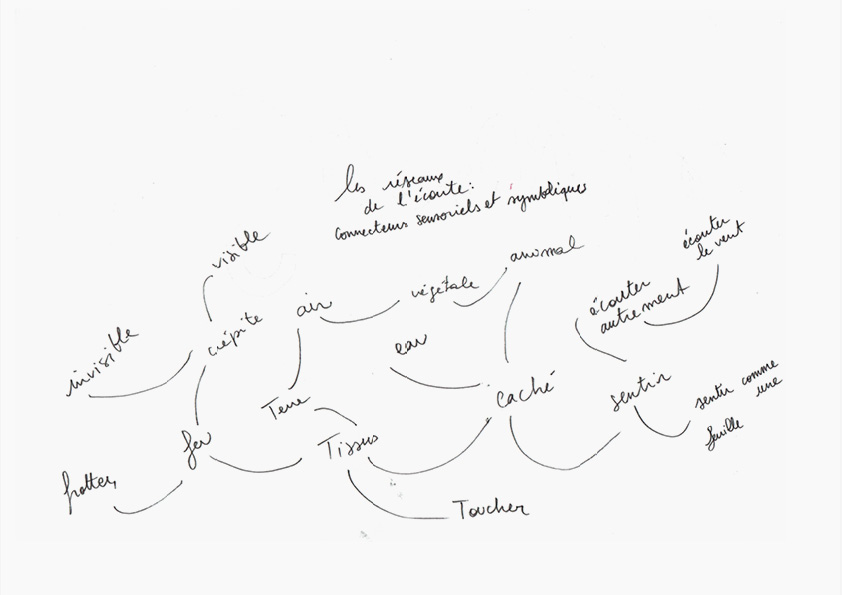 les réseaux
de l'écoute:
connecteurs sensoriels et symboliques
visible
écouter
le vent
animal
végétale
air
écouter
autrement
crépite
invisible
eau
Terre
caché
sentir
sentir comme
une
feuille
feu
Tissus
frotter
Toucher